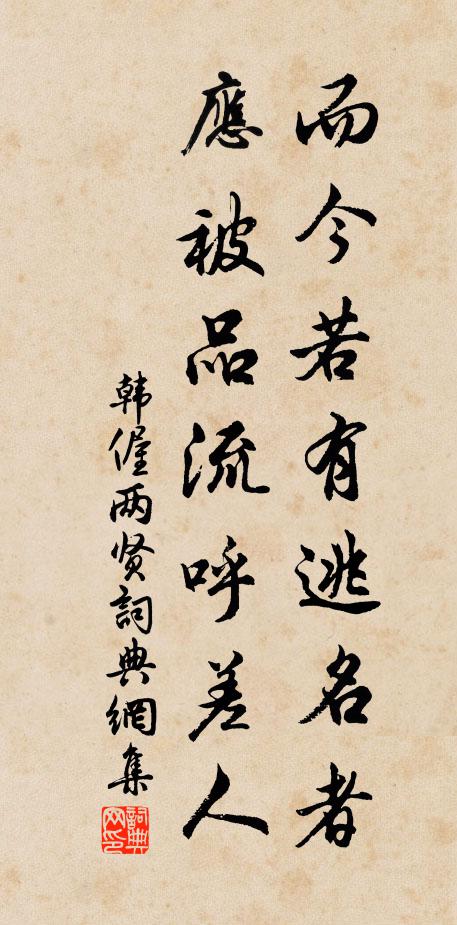 而今若有逃名者
應被品流呼差人
韩偓两贤詞典網集
詞典
网印